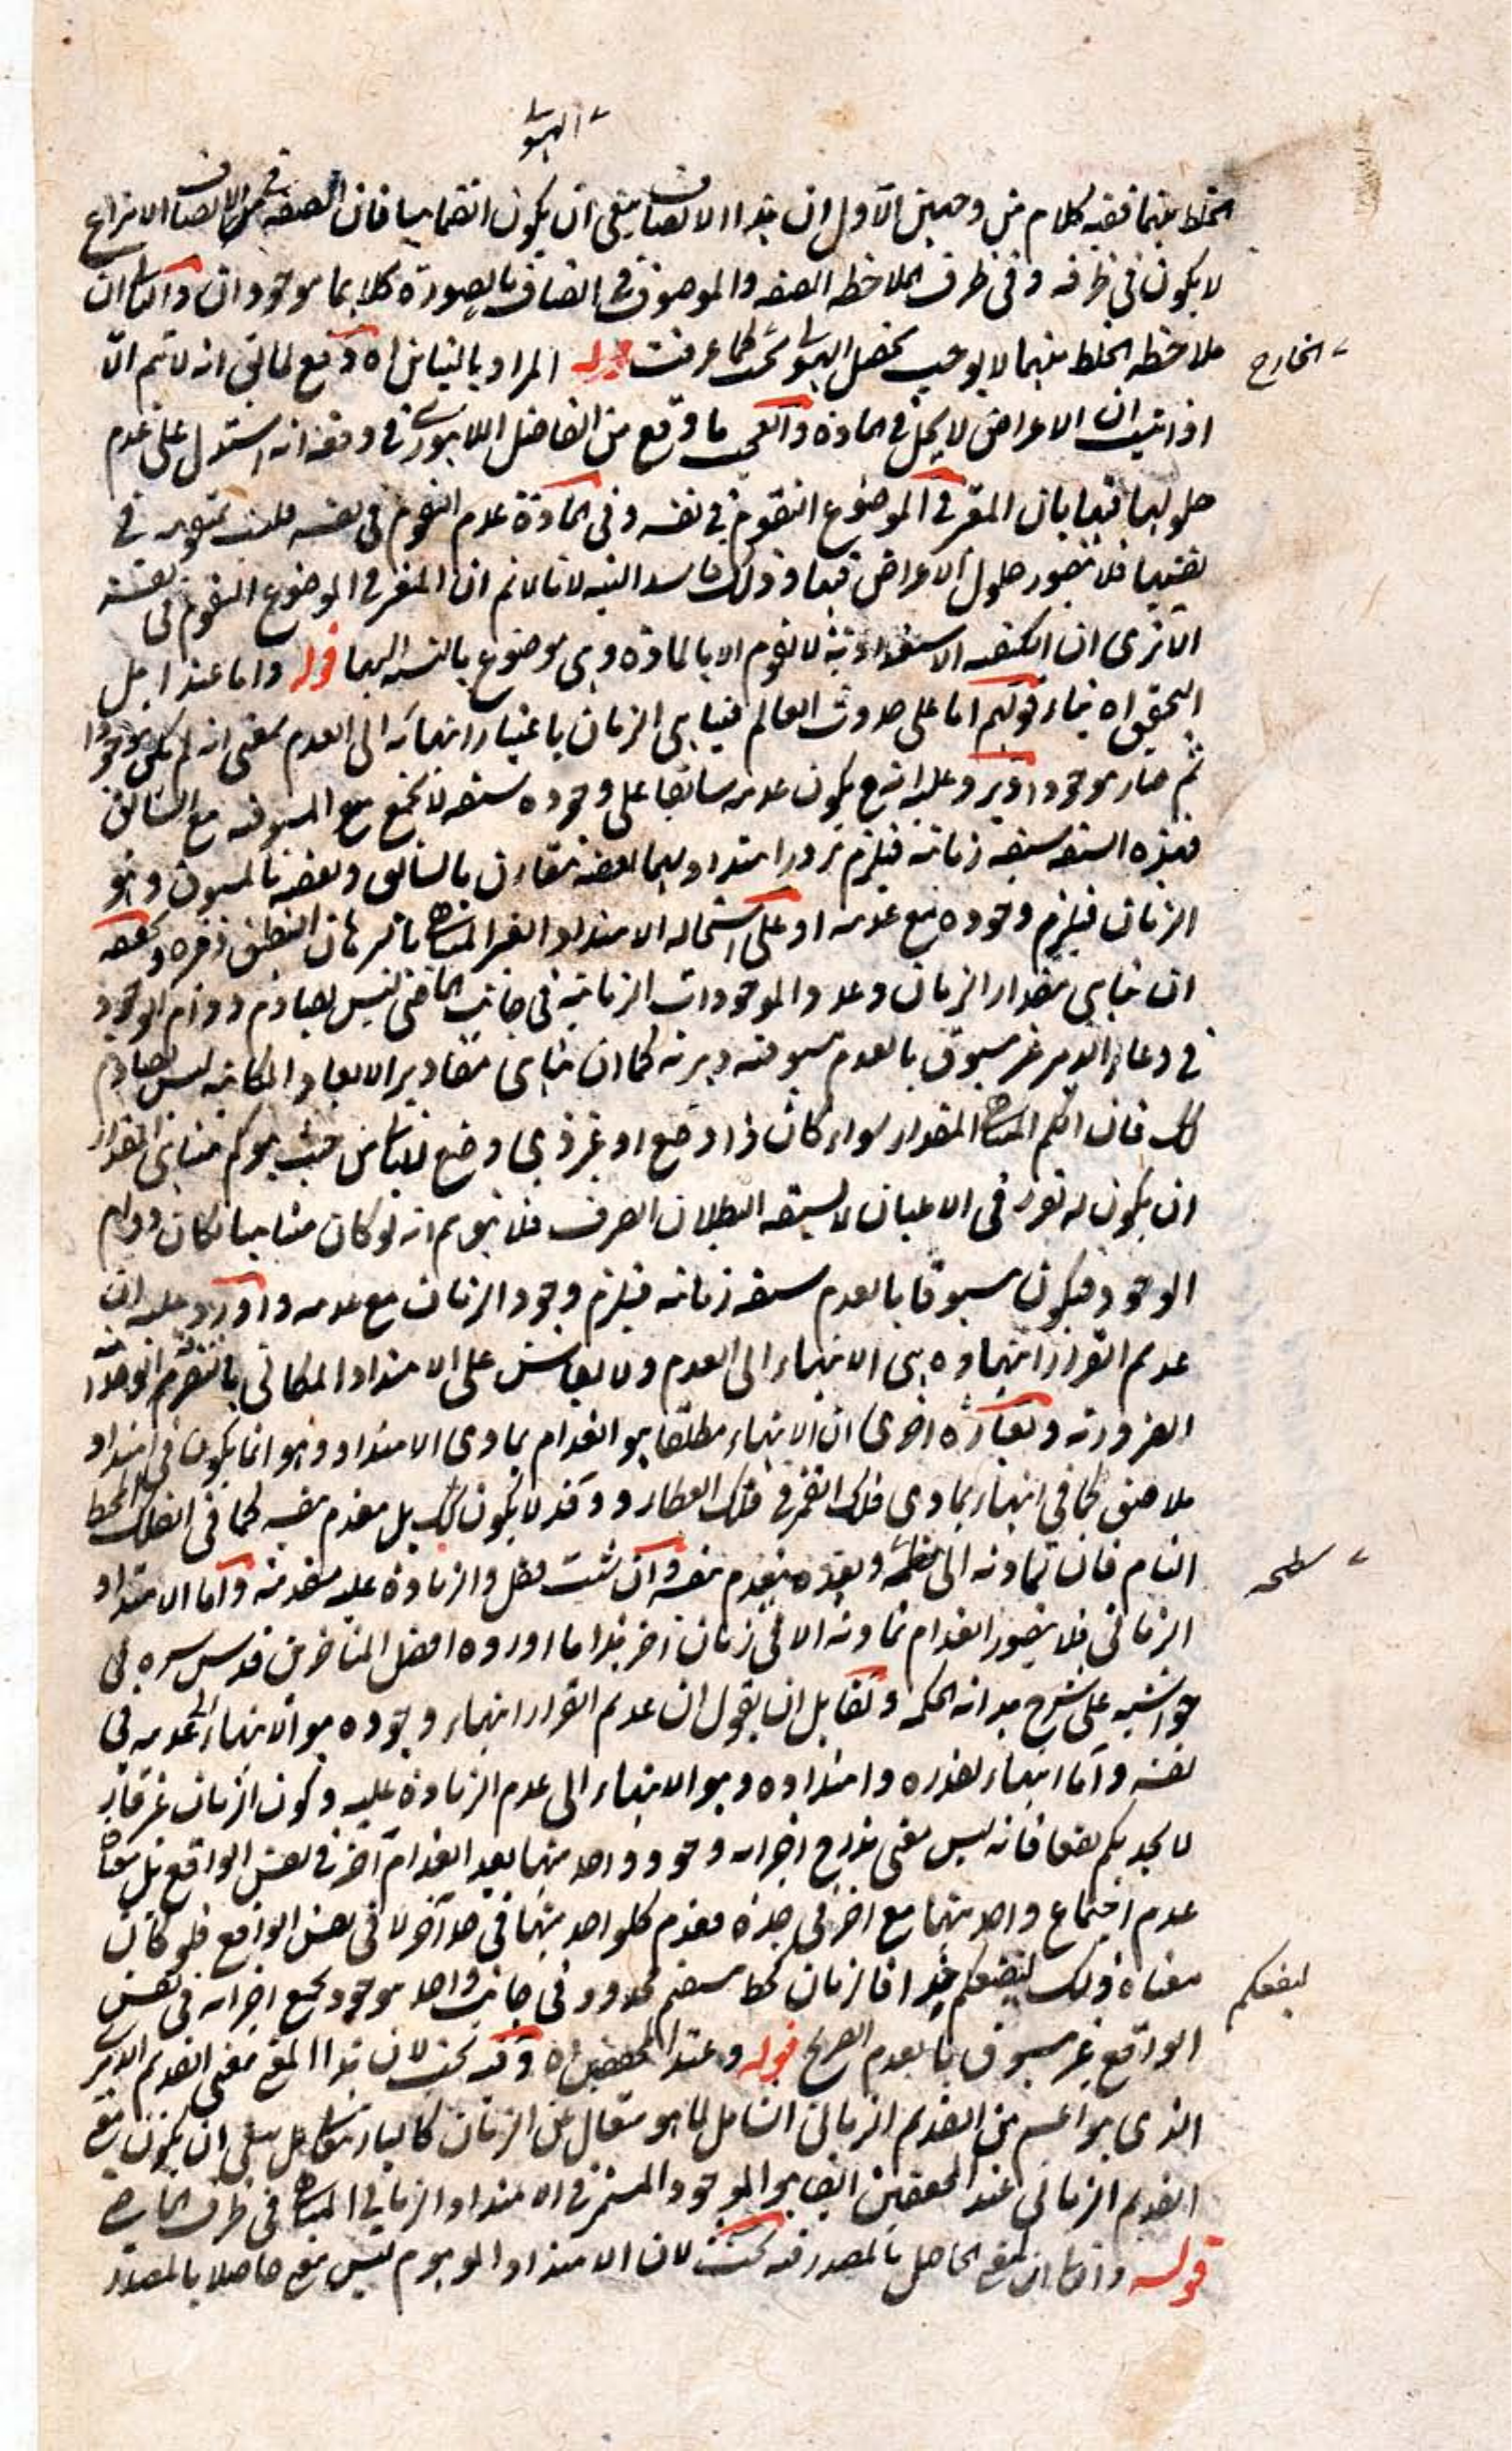 الهيولى
الخلط بينهما ففيه كلام من وجهين الاول ان هذا الاتصاف ينبغي ان يكون انضماميا فان الصفة في الاتصاف الانتزاعي
لا يكون في ظرفه وفي ظرف الملاحظة الصفة والموصوف في اتصاف بالصورة كلاهما موجودان والثاني ان
ملاحظة الخلط بينهما لا يوجب تحصل الهيولى كما عرفت قوله المراد بالتباين اه دفع لما انه لا تم الا
الخارج
اذا ان الاعراض لا يحل في المادة والعجب ما وقع من الفاضل اللاهوري في دفعه انه استدل على عدم
حلولها فيها بان المعتبر في الموضوع التقوم في نفسه وفي المادة عدم التقوم في نفسه في
نفسها فلا يتصور حلول الاعراض فيها وذلك فاسد البتة لانا لا نم ان المعتبر في الموضوع التقوم في نفسه
الا ترى ان الكيفية الاستعدادية لا تقوم الا بالمادة وهي موضوع بالنسبة اليها قوله واما عند اهل
التحقيق اه بناء قولهم اما على حدوث العالم فتناهى الزمان باعتبار انتهائه الى العدم بمعنى انه لم يكن موجودا
ثم صار موجودا ويرد عليه انه ح يكون عدمه سابقا على وجوده سبقة لا يجتمع مع المسبوق مع السابق
فهذه السبقة سبقة زمانية فيلزم امتداد بينهما بعضه مقارن بالسابق وبعضه بالمسبوق وهو
الزمان فيلزم وجوده مع عدمه او على استحالة الامتداد الغير المتناهي بالبرهان التطبيق وغيره وتحقيقه
ان تناهي مقدار الزمان وعدد الموجودات الزمانية في جانب الماضي ليس يصادم دوام الوجود
في وعاء الدهر غير مسبوق بالعدم مسبوقية دهرية كما ان تناهي مقادير الابعاد المكانية ليس يصادم
ذلك فان الكم المتناهي المقدار سواء كان ذا وضع او غير ذي وضع من حيث هو كم متناهي المقدار
ان يكون له تقرر في الاعيان لا يسبقه البطلان الصرف فلا يتوهم انه لو كان متناهيا لكان دوام
الوجود فيكون مسبوقا بالعدم سبقة زمانية فيلزم وجود الزمان مع عدمه واورد عليه ان
عديم القرار انتهاؤه هي الانتهاء الى العدم ولا يقاس على الامتداد المكاني
الضرورية وبعبارة اخرى ان الانتهاء مطلقا هو انعدام تمادي الامتداد وهو انما يكون في امتداد
ملاصق كما في انتهاء تمادي فلك القمر في فلك العطارد وقد لا يكون كذلك بل بعدم نفسه كما في الفلك المحيط
التام فان تماديه الى سطحه وبعده ينعدم بنفسه وان شئت فقل والزيادة عليه منعدمة واما الامتداد
سطحه
الزماني فلا يتصور انعدام تماديه الا في زمان آخر هذا ما اورده افضل المتأخرين قدس سره في
حواشيه على شرح هداية الحكمة ولقايل ان يقول ان عديم القرار انتهاء وجوده هو الانتهاء الى عدمه في
نفسه واما انتهاء تقدره وامتداده وهو الانتهاء الى عدم الزيادة عليه وكون الزمان غير قار
لا يجديكم نفعا فانه ليس معنى تدرج اجزائه وجود واحد منها بعد انعدام آخر في نفس الواقع بل معناه
عدم اجتماع واحد منها مع آخر في حده فعدم كل واحد منهما في حد آخر لا في نفس الواقع فلو كان
معناه ذلك لينفعكم هذا فالزمان كخط مستقيم محدود في جانب واحد موجود بجميع اجزائه في نفس
لينفعكم
الواقع غير مسبوق بالعدم الصريح قوله وعند المحققين اه وفيه بحث لان هذا المعنى معنى القديم الدهري
الذي هو اعم من القديم الزماني الشامل لما هو متعال عن الزمان كالباري تعالى بل ينبغي ان يكون معنى
القديم الزماني عند المحققين ايضا هو الموجود المستمر في الامتداد الزماني المتناهي في ظرف الماضي
قوله واما ان المعنى الحاصل بالمصدر فيه بحث لان الامتداد الموهوم ليس معنى حاصلا بالمصدر